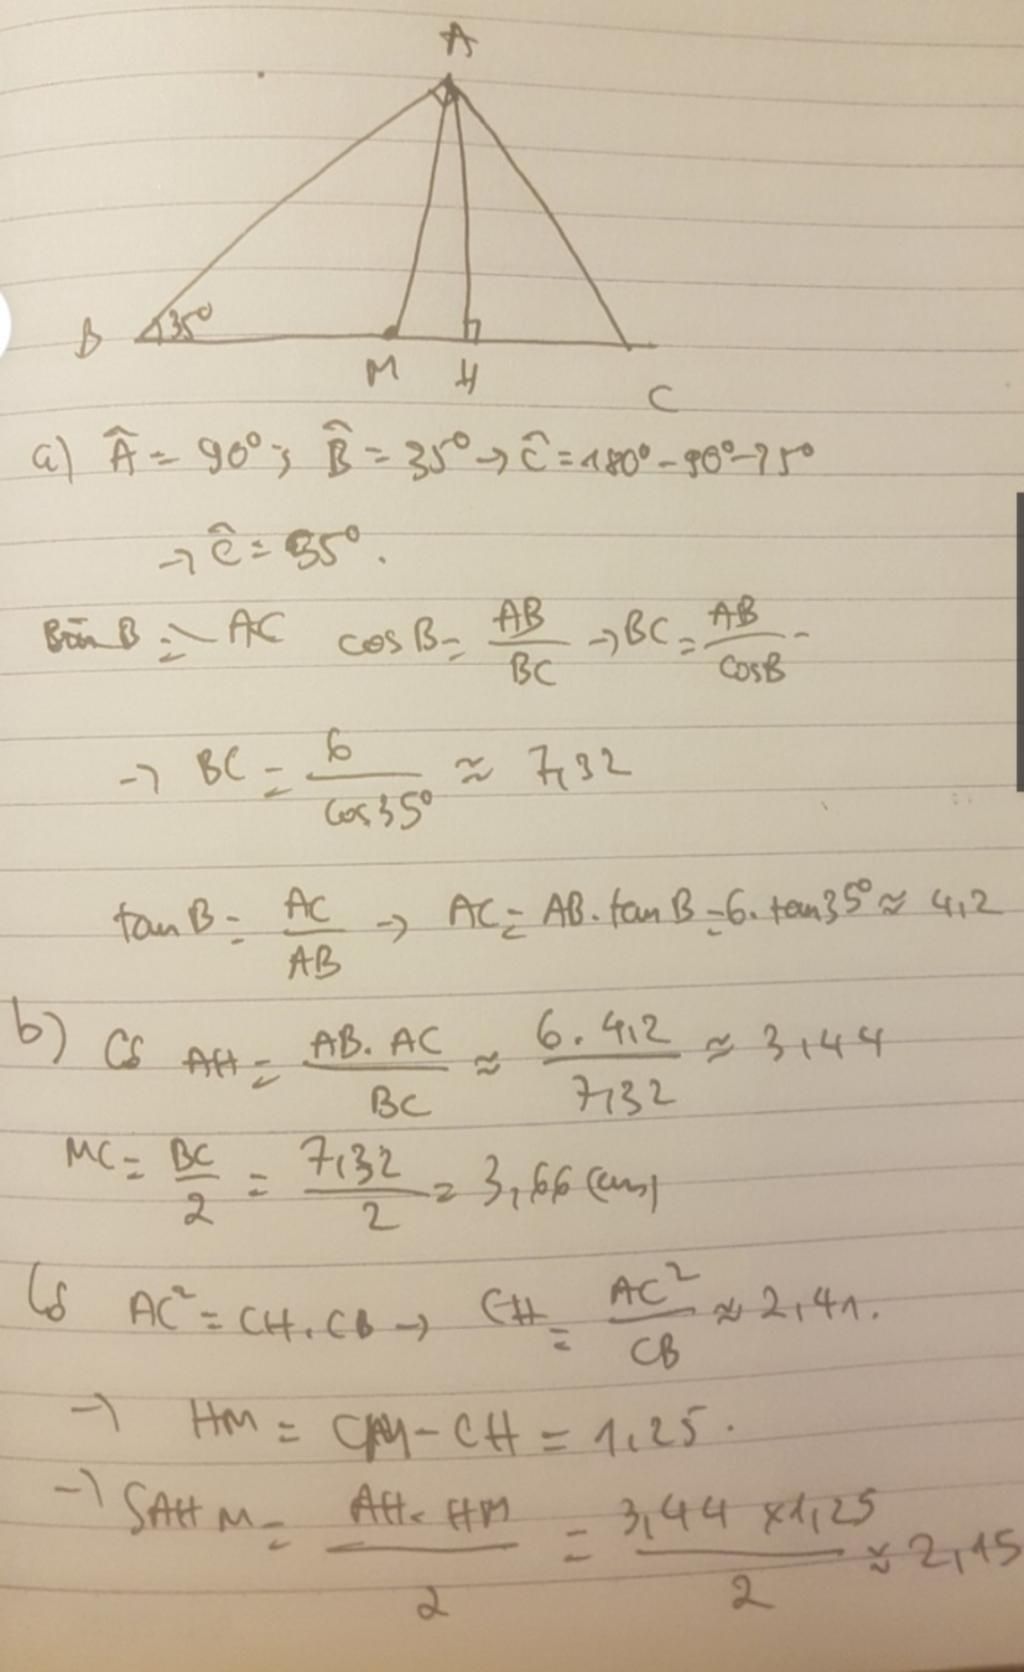 A
B 35° M H C
a) Â = 90°; B̂ = 35° → Ĉ = 180° - 90° - 35°
→ Ĉ = 35°.
AC cos B = AB/BC → BC = AB/cosB
→ BC = 6/cos35° ≈ 7,32
tan B = AC/AB → AC = AB.tan B = 6.tan35° ≈ 4,2
b) Có AH = AB.AC/BC ≈ 6.4,2/7,32 ≈ 3,44
MC = BC/2 = 7,32/2 = 3,66 (cm)
Có AC² = CH.CB → CH = AC²/CB ≈ 2,41.
→ HM = CM - CH = 1,25.
→ SAHM = AH.HM/2 = 3,44 x1,25/2 ≈ 2,15